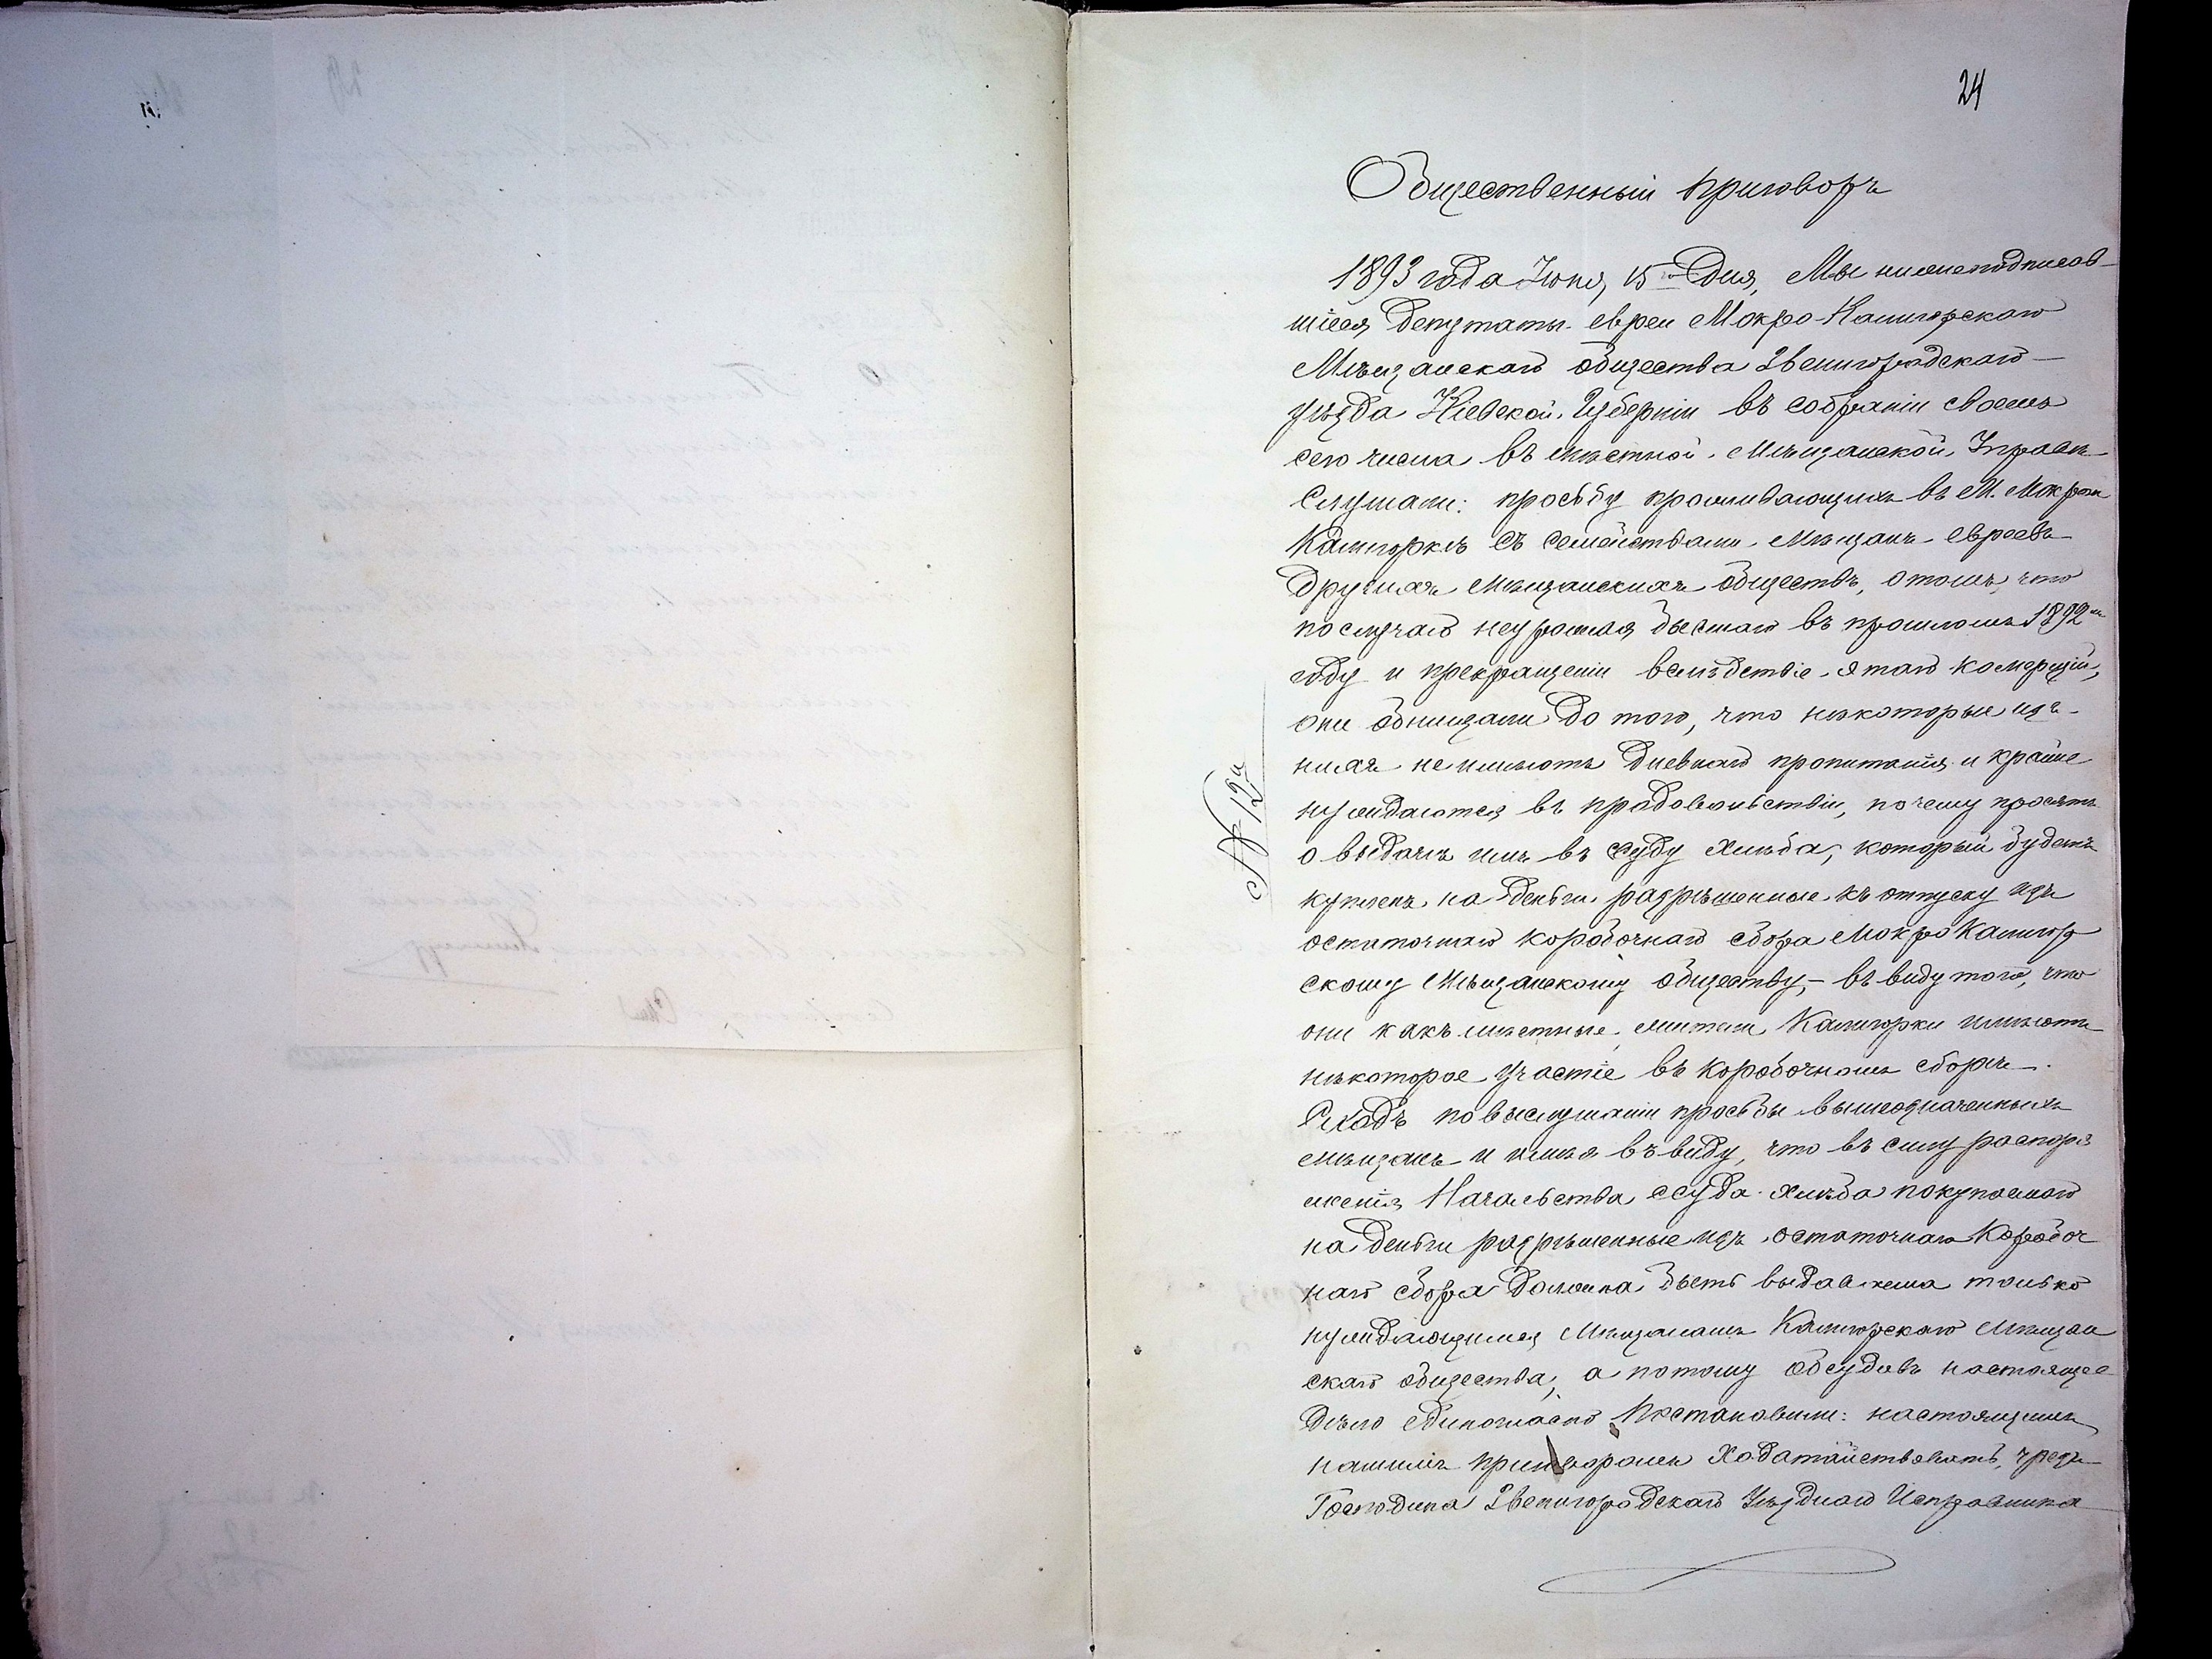 24
Общественный приговоръ
1893 года Июня 15 дня, Мы нижеподписав-
шіеся депутаты евреи Мокро-Калигорскаго
Мѣщанскаго общества Звенигородскаго
уѣзда Кіевской Губерніи въ собраніи своемъ
сего числа въ мѣстной Мѣщанской Управѣ
Слушали: просьбу проживающихъ въ М. Мокрой
Калигоркѣ съ семействами мѣщанъ евреевъ
другихъ мѣщанскихъ обществъ, о томъ, что
по случаю неурожая бывшаго въ прошломъ 1892 м
году и прекращеніи вслѣдствіе этаго комерціи,
они обнищали до того, что нѣкоторые изъ
нихъ не имѣютъ дневнаго пропитанія и крайне
нуждаются въ продовольствіи, почему просятъ
о выдачѣ имъ въ суду хлѣба, который будетъ
купленъ на деньги разрѣшенные къ отпуску изъ
остаточнаго коробочнаго сбора Мокро Калигор
скому Мѣщанскому обществу,- въ виду того, что
они какъ мѣстные жители Калигорки имѣютъ
нѣкоторое участіе въ коробочномъ сборѣ.
№ 12й
по выслушаніи просьбы вышеозначенныхъ
мѣщанъ и имѣя въ виду, что въ силу распоря
женія Начальства ссуда хлѣба покупаемаго
на деньги разрѣшенные изъ остаточнаго Коробоч
наго сбора должна быть выдаваема только
нуждающимся Мѣщанамъ Калигорскаго мѣщан
скаго общества, а потому обсудивъ настоящее
дѣло единогласно Постановили: настоящимъ
нашимъ приговоромъ Ходатайствовать, чрезъ
Господина Звенигородскаго Уѣзднаго Исправника